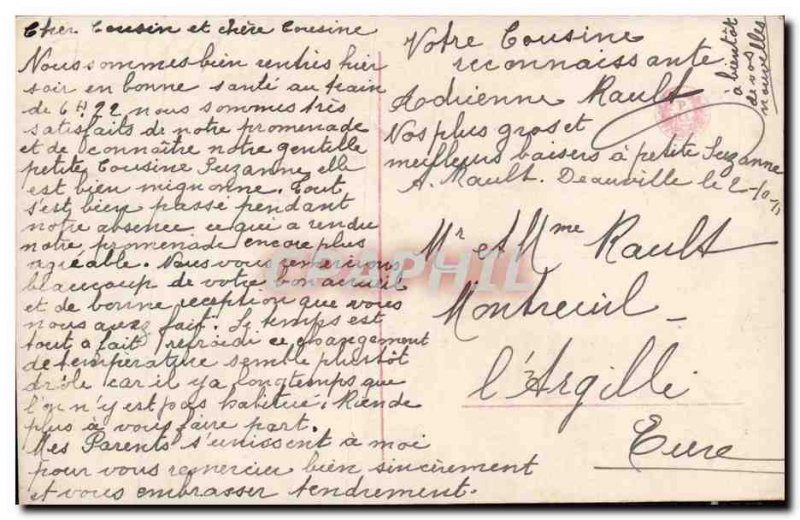 Cher Cousin et chère Cousine
Nous sommes bien rentrés hier
soir en bonne santé au train
de 6H22 nous sommes très
satisfaits de notre promenade
et de connaître notre gentille
petite Cousine Suzanne elle
est bien mignonne. Tout
s'est bien passé pendant
notre absence ce qui a rendu
notre promenade encore plus
agréable. Nous vous remercions
beaucoup de votre bon accueil
et de bonne réception que vous
nous avez fait. Le temps est
tout à fait refroidi ce changement
de température semble plutôt
drôle car il y a longtemps que
l'on n'y est pas habitué. Rien de
plus à vous faire part.
Mes Parents s'unissent à moi
pour vous remercier bien sincèrement
et vous embrasser tendrement.
Votre Cousine
reconnaissante
Adrienne Rault
Nos plus gros et
meilleurs baisers à petite Suzanne
A. Rault. Deauville le 2-10-11
à bientôt
de vos
nouvelles
Mr et Mme Rault
Montreuil-
l'Argillé
Eure
CPAPHIL